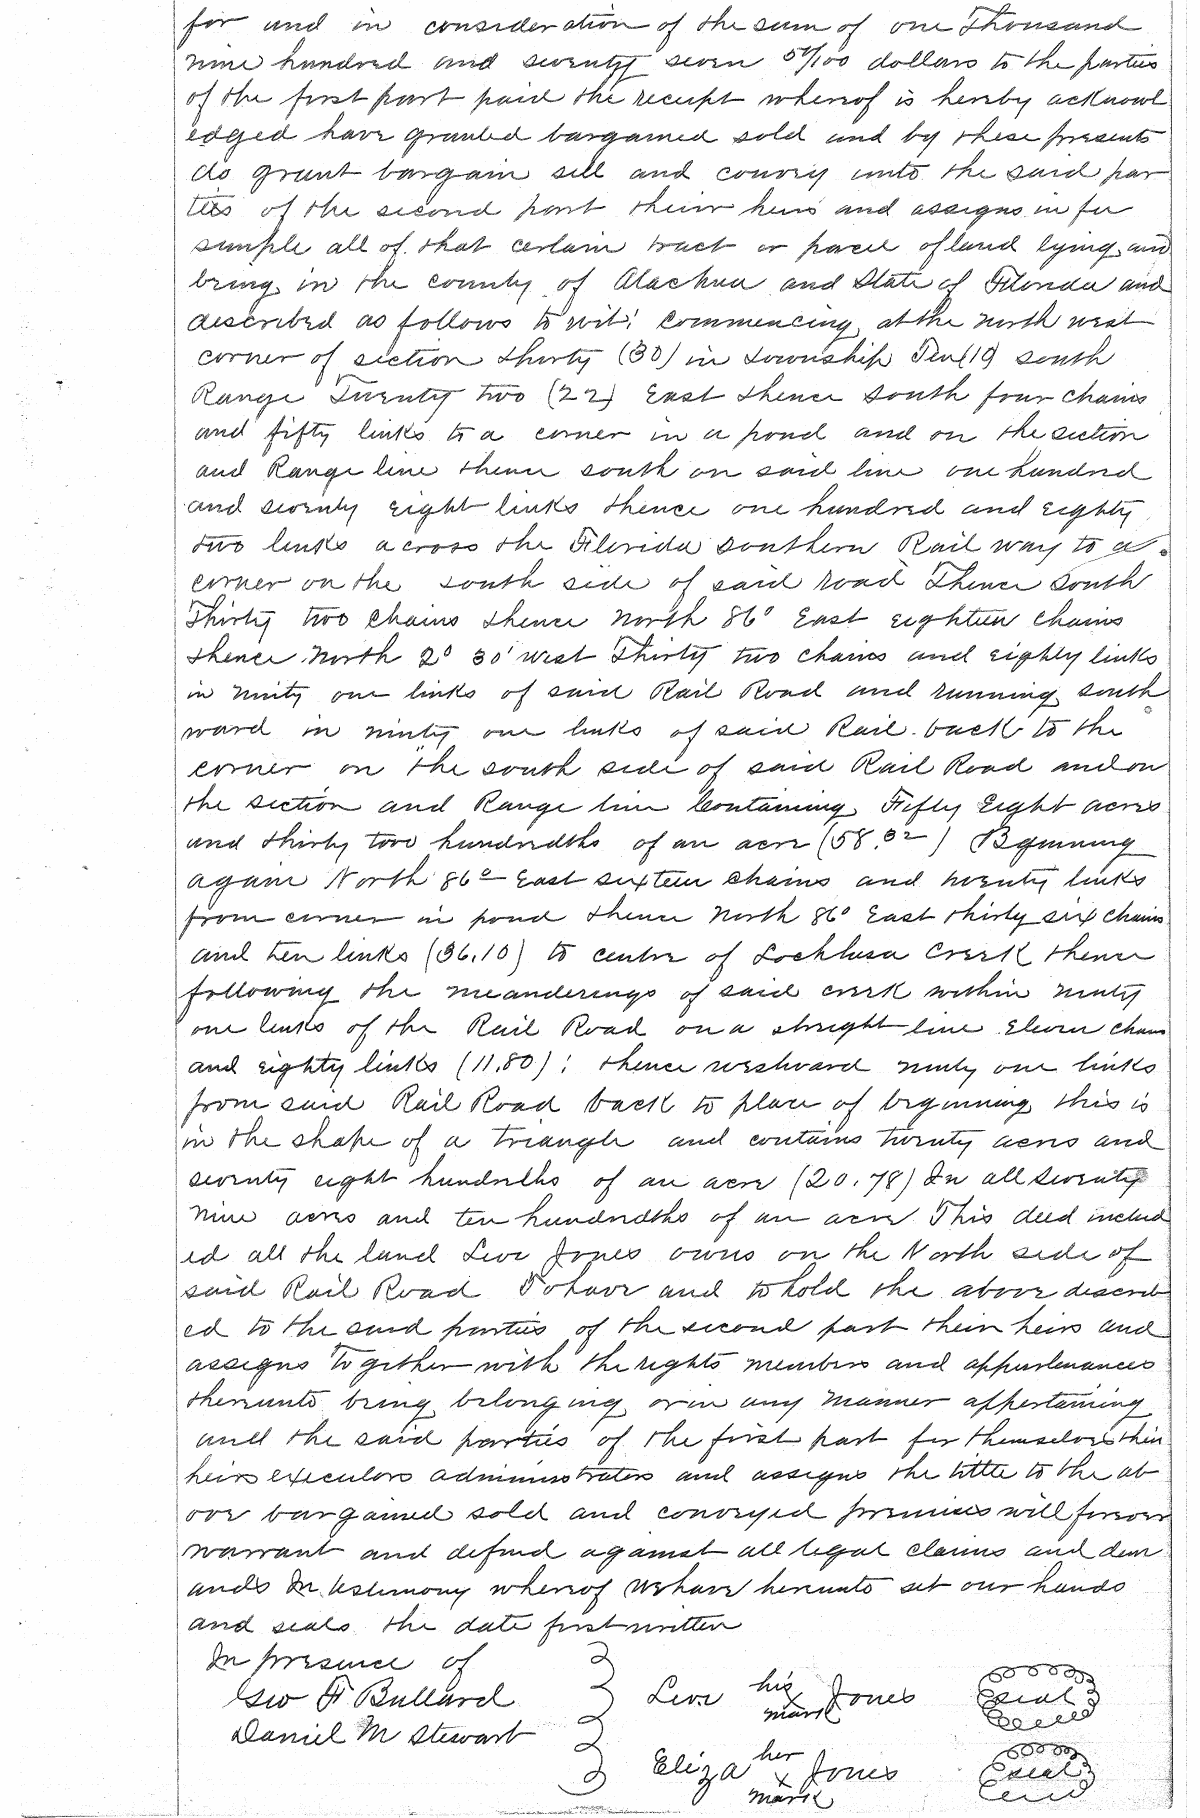 for and in consideration of the sum of one Thousand
nine hundred and seventy seven 50/100 dollars to the parties
of the first part paid the receipt whereof is hereby acknowl
edged have granted bargained sold and by these presents
do grant bargain sell and convey unto the said par
ties of the second part their heirs and assigns in fee
simple all of that certain tract or parcel of land lying and
being in the county of Alachua and State of Florida and
described as follows to wit: Commencing at the north west
corner of section thirty (30) in township Ten (10) south
Range Twenty two (22) East thence south four chains
and fifty links to a corner in a pond and on the section
and Range line thence south on said line one hundred
and seventy eight links thence one hundred and eighty
two links across the Florida Southern Rail way to a
corner on the south side of said road Thence south
Thirty two chains thence North 86° East eighteen chains
thence North 2° 30' west Thirty two chains and eighty links
in ninty one links of said Rail Road and running south
ward in ninty one links of said Rail back to the
corner on the south side of said Rail Road and on
the section and Range line Containing Fifty Eight acres
and thirty two hundredths of an acre (58.32) Bginning
again North 86° East sixteen chains and twenty links
from corner in pond thence North 86° East thirty six chains
and ten links (36.10) to centre of Lochlusa Creek thence
following the meanderings of said creek within ninty
one links of the Rail Road on a straight line Eleven chains
and eighty links (11.80): thence westward ninty one links
from said Rail Road back to place of beginning this is
in the shape of a triangle and contains twenty acres and
seventy eight hundreths of an acre (20.78) In all seventy
nine acres and ten hundredths of an acre This deed includ
ed all the land Levi Jones owns on the North side of
said Rail Road To have and to hold the above describ
ed to the said parties of the second part their heirs and
assigns together with the rights members and appurtenances
thereunto being belonging or in any manner appertaining
and the said parties of the first part for themselves their
heirs executors administrators and assigns the tittle to the ab
ove bargained sold and conveyed premises will forever
warrant and defend against all legal claims and dem
ands In testimony whereof we have hereunto set our hands
and seals the date first written
In presence of
Geo F Bullard
Daniel M Stewart
Levi his x mark Jones seal
Eliza her x mark Jones seal